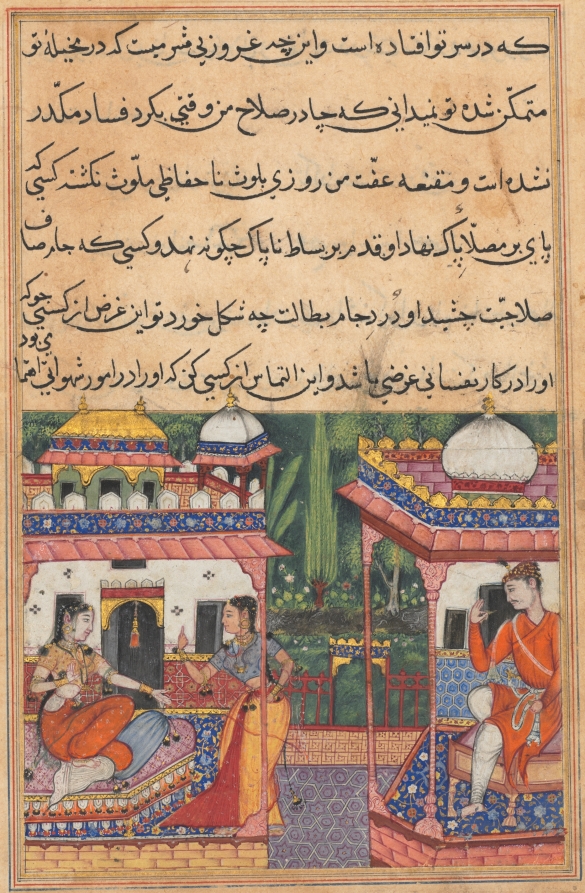 که در سر تو افتاده است و این چه غرور بی ثمر هست که در مخیلهٔ تو
متمکّن شده تو نمیدانی که چادر صلاح من وقتی بکرد فساد مکدّر
نشده است و مقنعه عفّت من روزی بلوث ناحفاظی ملوّث نکشته کسی که
پای بر مصلّا پاک نهاد او قدم بر بساط ناپاک چکونه نهد و کسی که جام صاف
صلاحیّت چشید او دُردِ جام بطالت چه شکل خورد تو این غرض از کسی جو که
او را در کار نفسانی غرضی باشد و این التماس از کسی کن که او را در امور شهوانی